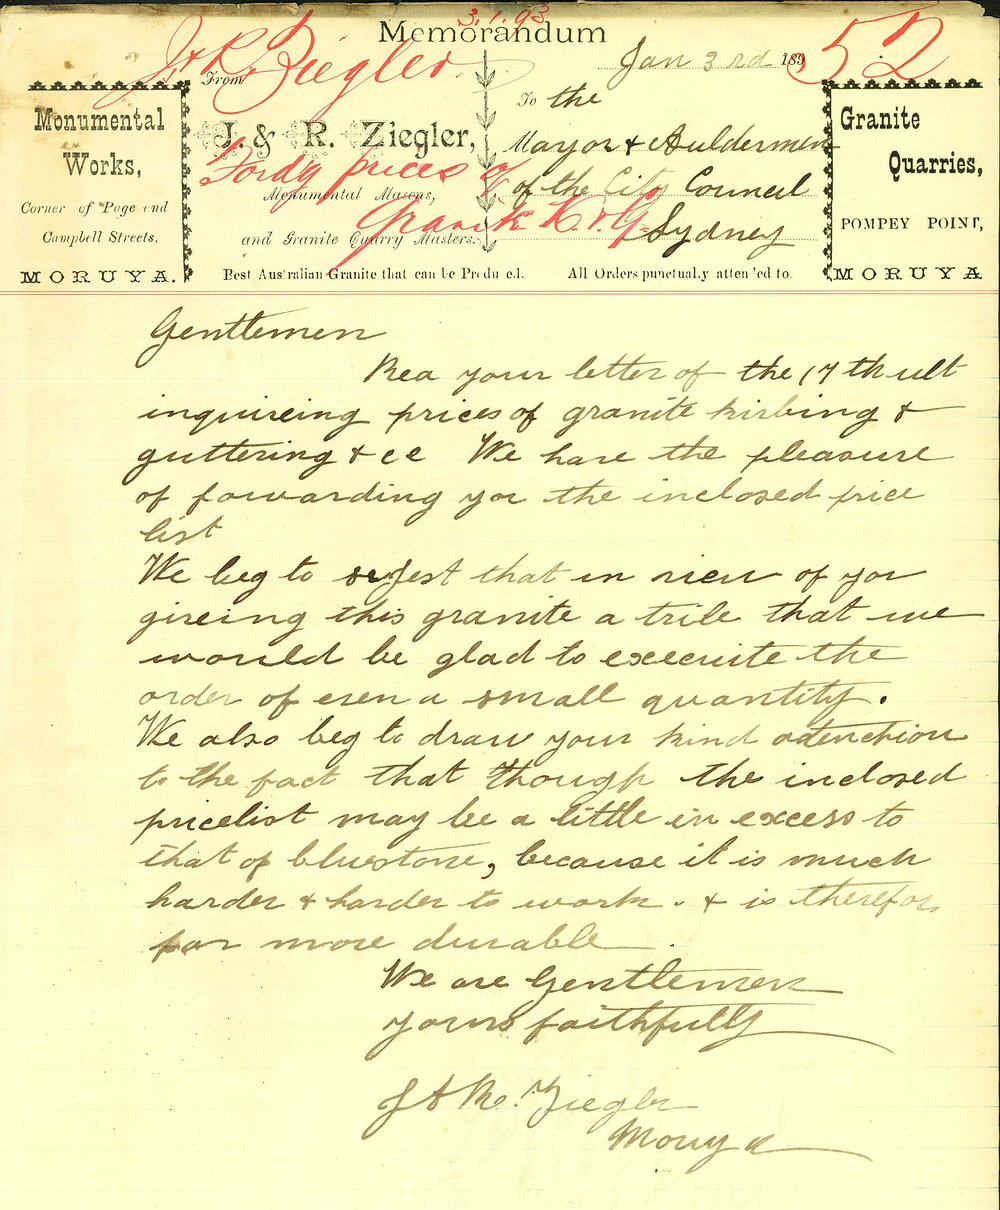 3.1.93
Memorandum
J & R. Ziegler
52
Jan 3rd 1893
From
To the
Monumental
Works,
Corner of Page and
Campbell Streets.
MORUYA.
J. & R. Ziegler,
Monumental Masons,
and Granite Quarry Masters.
Fordg prices of
Granite K & G.
Mayor & Auldermen
of the City Council
Sydney
Granite
Quarries,
POMPEY POINT,
MORUYA
Best Australian Granite that can be Produced.
All Orders punctually attended to.
Gentlemen
Rea your letter of the 17th ult
inquireing prices of granite kirbing &
guttering & cc We have the pleasure
of forwarding you the inclosed price
list
We beg to sugjest that in view of you
giveing this granite a trile that we
would be glad to execuite the
order of even a small quantity.
We also beg to draw your kind attenchion
to the fact that though the inclosed
pricelist may be a little in excess to
that of bluestone, because it is much
harder & harder to work. & is therefor
far more durable.
We are Gentlemen
yours faithfully
J & R. Ziegler
Moruya